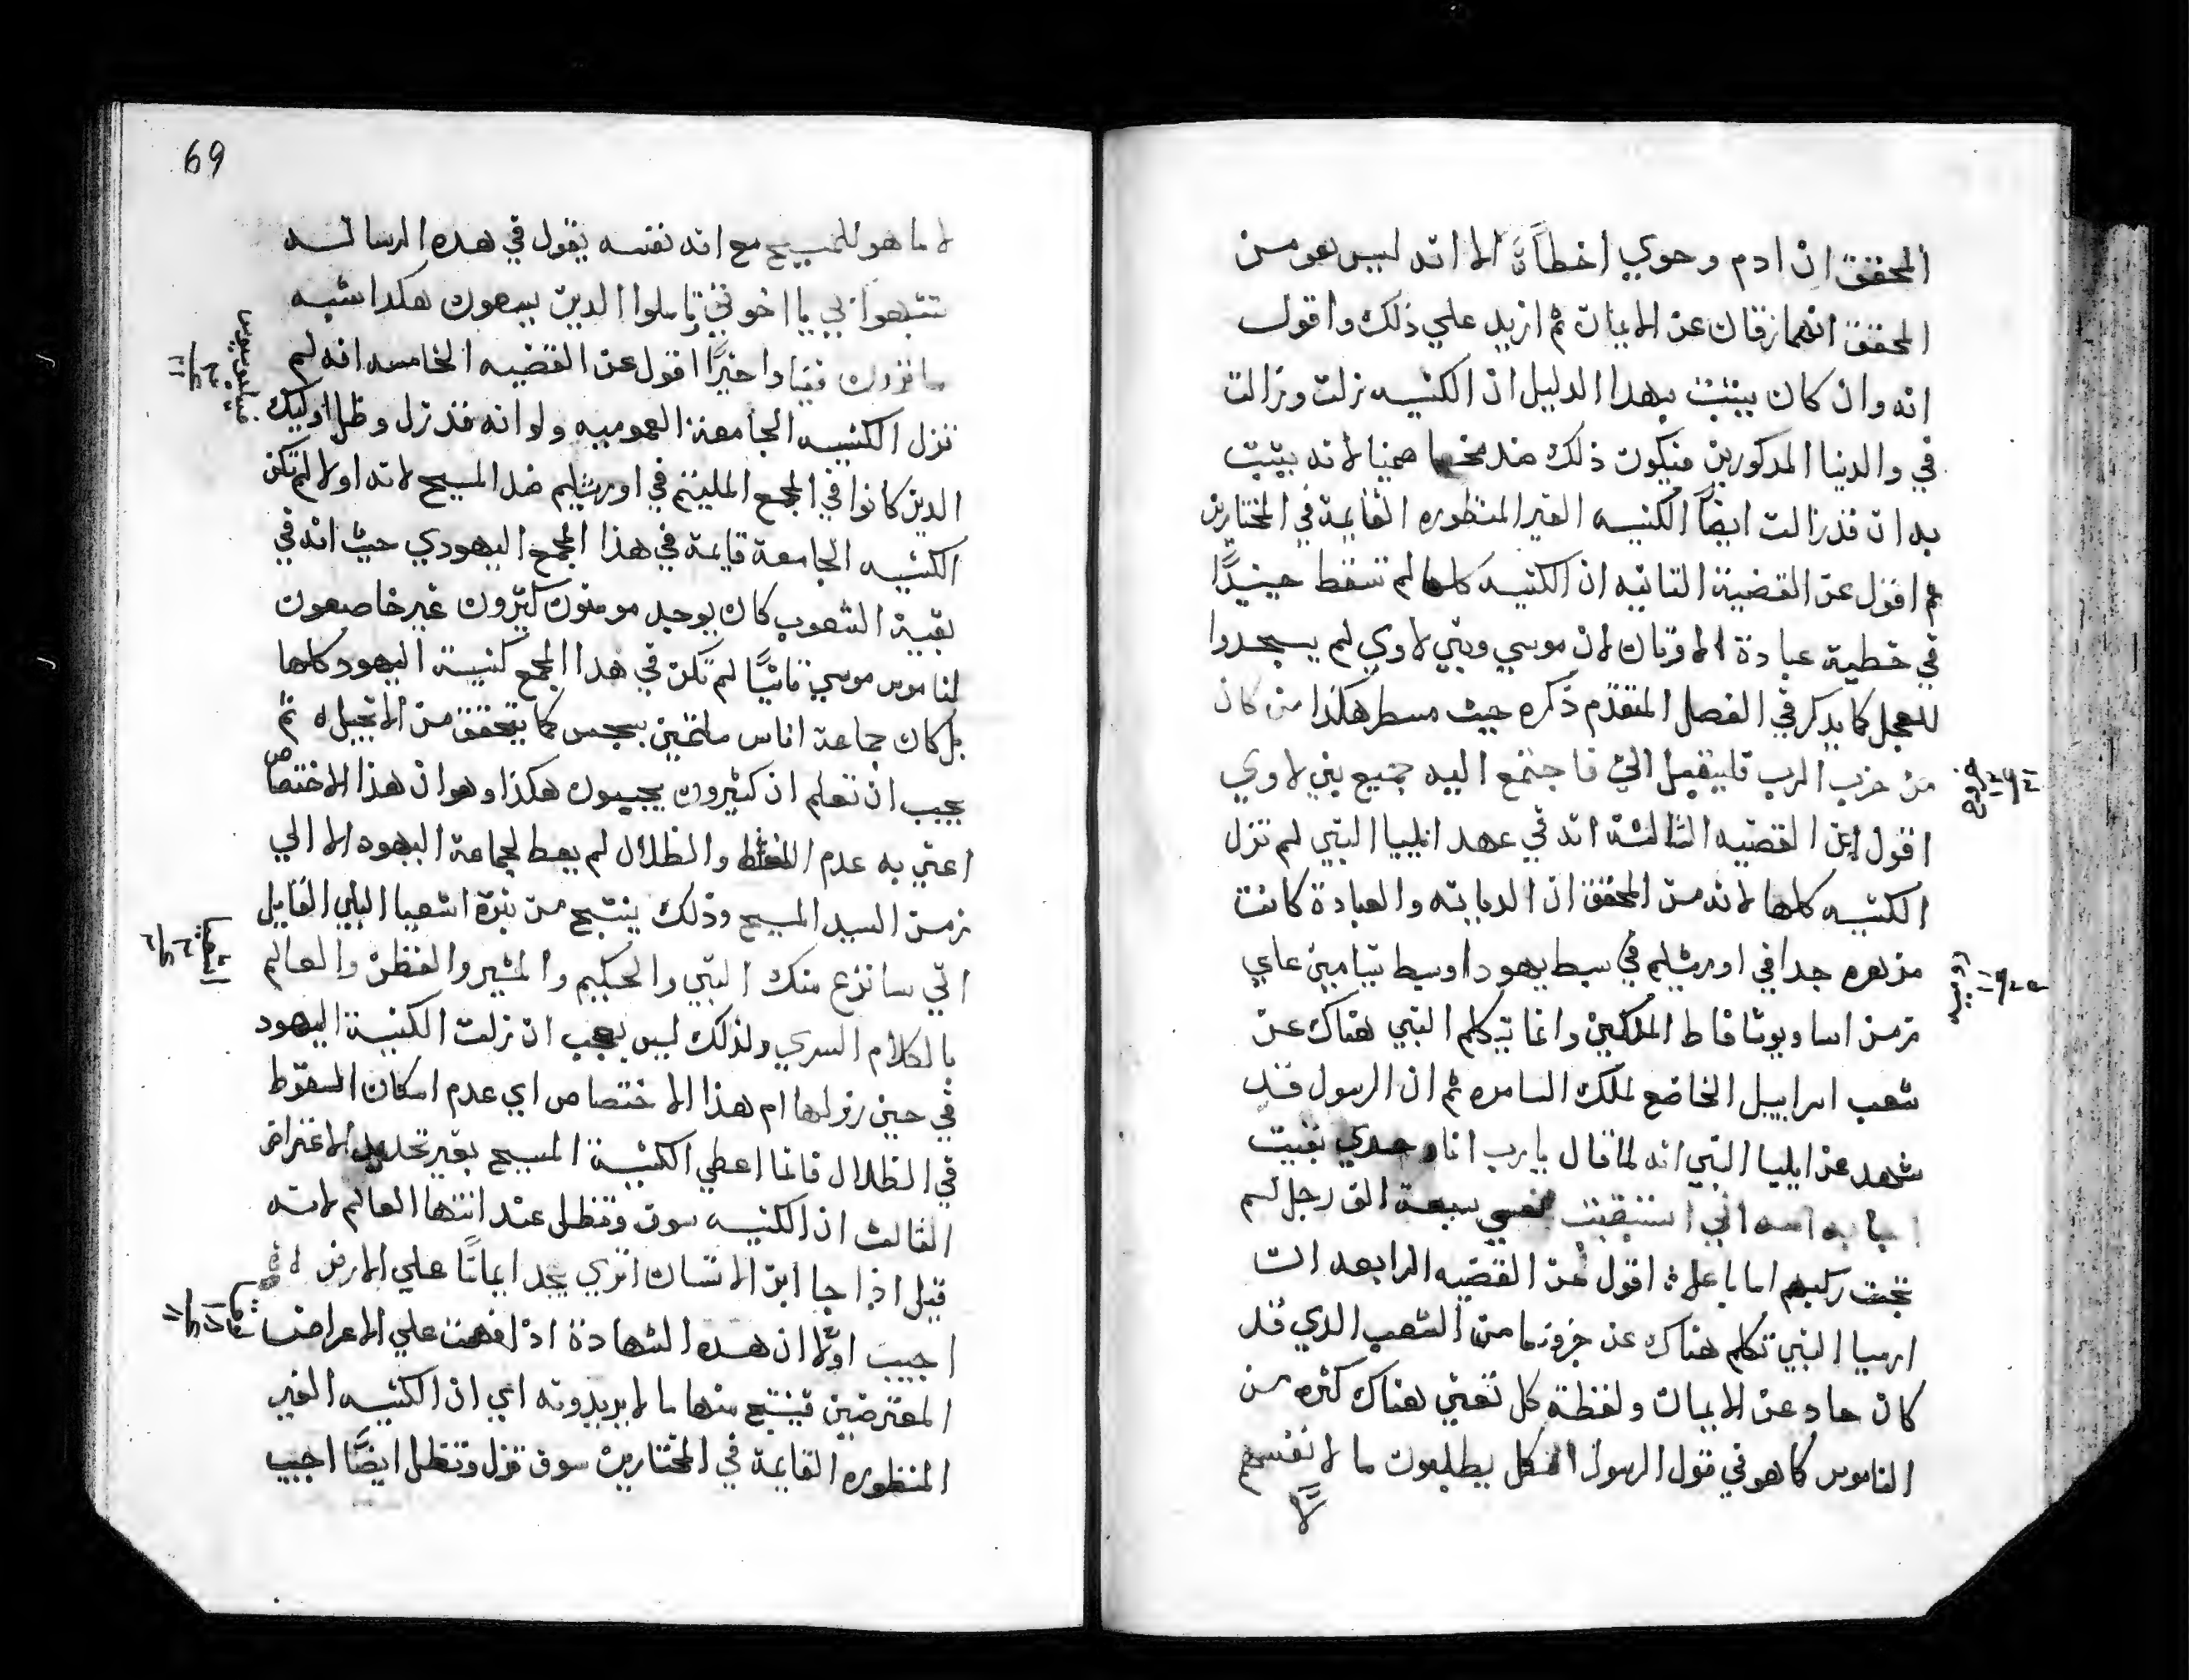 المحقق ان ادم وحوي اخطاة الا انه ليس هو من
المحقق انهما زقان عن الايمان ثم ازيد علي ذلك واقول
انه وان كان يثبت بهدا الدليل ان الكنيسه زلت وزالت
في والدينا المدكورين فيكون ذلك ضد صمنيا لانه يثبت
بدان قد زالت ايضاً الكنيسه الغير المنظوره القايمة في المختارين
ثم اقول عن القضية الثانيه ان الكنيسه كلها لم تسقط حينيدًا
في خطية عبادة الاوثان لان موسي وبني لاوي لم يسجدوا
للعجل كما يدكر في الفصل المتقدم ذكره حيث مسطر هكذا من كان
من حزب الرب فليقبل اليّ فاجتمع اليه جميع بني لاوي
اقول عن القضيه الثالثة انه في عهد ايليا النبي لم تزل
الكنيسه كلها لانه من المحقق ان الديانه والعبادة كانت
مزهره جدا في اورشليم في سبط يهودا وسبط بنيامين علي
زمن اسا ويوشافاط الملكين وانما تكلم النبي هناك عن
شعب اسراييل الخاضع لملك السامره ثم ان الرسول قد
شهد عن ايليا النبي انه لما قال يارب انا وحدي بقيت
اجابه الله اني استبقيت لنفسي سبعة الف رجل لم
تجث ركبهم اما باعل ⁘ اقول عن القضيه الرابعه ان
ارميا النبي تكلم هناك عن جزوٍ ما من الشعب الدي قد
كان حاد عن الايمان ولفظة كل تعني هناك كثره من
الناموس كما هو في قول الرسول الكل يطلبون ما لانفسهم
لا
69
لا ما هو للمسيح مع انه نفسه يقول في هده الرساله
تشبهوا بي يا اخوتي وتاملوا الدين يسعون هكدا شبه
ما ترون فينا واخيرًا اقول عن القضيه الخامسه انه لم
تزل الكنيسه الجامعة العموميه ولو انه قد زل وظل اوليك
الدين كانوا في المجمع الملتيم في اورشليم ضد المسيح لانه اولا لم تكن
الكنيسه الجامعة قايمة في هذا المجمع اليهودي حيث انه في
بقية الشعوب كان يوجد مومنون كثيرون غير خاضعون
لناموس موسي ثانيًا لم تكن في هدا المجمع كنيسة اليهود كلها
بل كان جماعة اناس ملتمين بسجس كما يتحقق من الانجيل ⁘ ثم
يجب ان تعلم ان كثيرون يجيبون هكذا وهو ان هذا الاختصاص
اعني به عدم الغلط والظلال لم يعط لجماعة اليهود الا الي
زمن السيد المسيح وذلك ينتج من نبوة اشعيا النبي القايل
اني سانزع منك النبي والحكيم والمشير والفطن والعالم
بالكلام السري ولذلك ليس يعجب ان زلت الكنيسة اليهود
في حين زولها ام هذا الاختصاص اي عدم امكان السقوط
في الظلال فانما اعطي لكنيسة المسيح بغير تحديد الاغتراض
الثالث ان الكنيسه سوف تظل عند انتها العالم لانه
قيل اذا جا ابن الانسان اتري يجد ايمانًا علي الارض
اجيب اولًا ان هده الشهادة اذ افهمت علي الاعراض
المعترضين فينتج منها ما لا يريدونه اي ان الكنيسه الغير
المنظوره القايمة في المختارين سوف تزل وتظل ايضًا اجيب